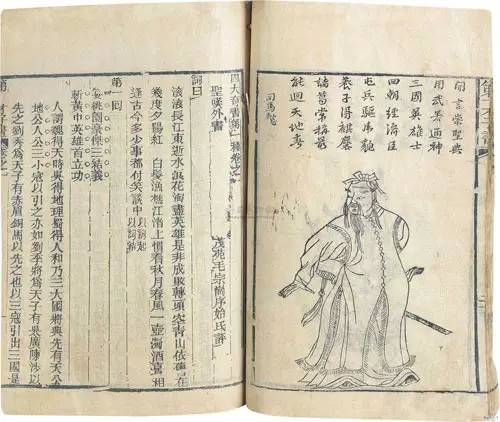 開言崇聖典
用武若通神
三國英雄士
四朝經濟臣
屯兵驅虎豹
養子得麒麟
諸葛常稱羨
能迴天地春
司馬懿
四大奇書第一種卷之一
聖嘆外書
茂苑毛宗崗序始氏評
詞曰
滾滾長江東逝水浪花淘盡英雄是非成敗轉頭空青山依舊在
幾度夕陽紅 白髮漁樵江渚上慣看秋月春風一壺濁酒喜相
逢古今多少事都付笑談中
第一回
宴桃園豪傑三結義
斬黃巾英雄首立功
人謂魏得天時吳得地理蜀得人和乃三大國將興先有天公
地公人公三小寇以引之亦如劉季將為天子有吳廣陳涉以
先之劉秀為天子有赤眉銅馬以先之也以三寇引出三國是